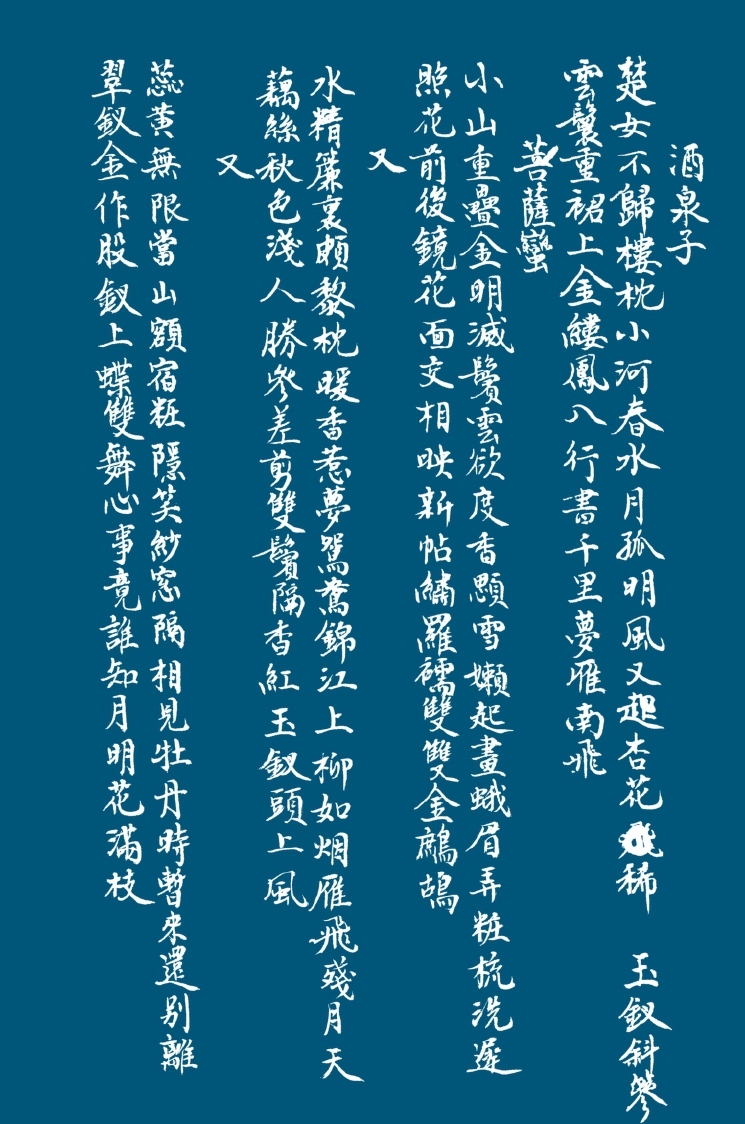 酒泉子
楚女不歸樓枕小河春水月孤明風又起杏花稀 玉釵斜篸
雲鬟重裙上金縷鳳八行書千里夢雁南飛
菩薩蠻
小山重疊金明滅鬢雲欲度香顋雪嬾起畫蛾眉弄粧梳洗遲
照花前後鏡花面交相映新帖繡羅襦雙雙金鷓鴣
又
水精簾裏頗黎枕暖香惹夢鴛鴦錦江上柳如烟雁飛殘月天
藕絲秋色淺人勝參差剪雙鬢隔香紅玉釵頭上風
又
蕊黃無限當山額宿粧隱笑紗窓隔相見牡丹時暫來還別離
翠釵金作股釵上蝶雙舞心事竟誰知月明花滿枝